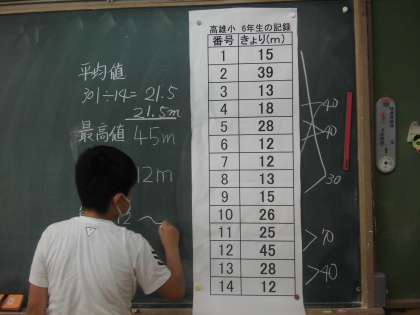 平均値
301÷14=21.5
21.5m
最高値 45m
12m
12 〜
高雄小 6年生の記録
番号 きょり(m)
1 15
2 39
3 13
4 18
5 28
6 12
7 12
8 13
9 15
10 26
11 25
12 45
13 28
14 12
40
40
30
70
40